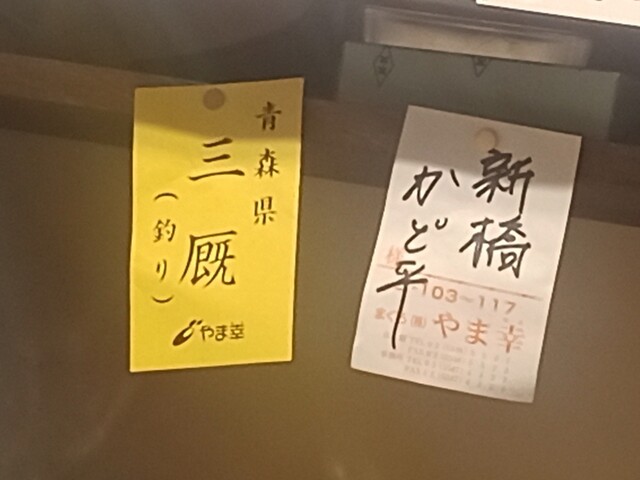 青森県
三厩
(釣り)
やま幸
新橋
かど平
103~117
まぐろ(株)やま幸